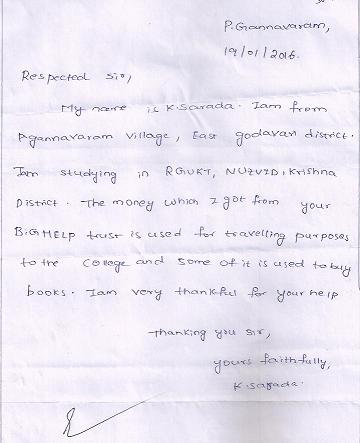 P.Gannavaram,
19/01/2016.
Respected sir,
My name is K.Sarada. Iam from
P.gannavaram Village, East godavari district.
Iam studying in RGUKT, NUZVID, Krishna
District. The money which I got from your
BIGHELP trust is used for travelling purposes
to the College and some of it is used to buy
books. Iam very thankful for your help
Thanking you sir,
yours faithfully,
K.sarada.